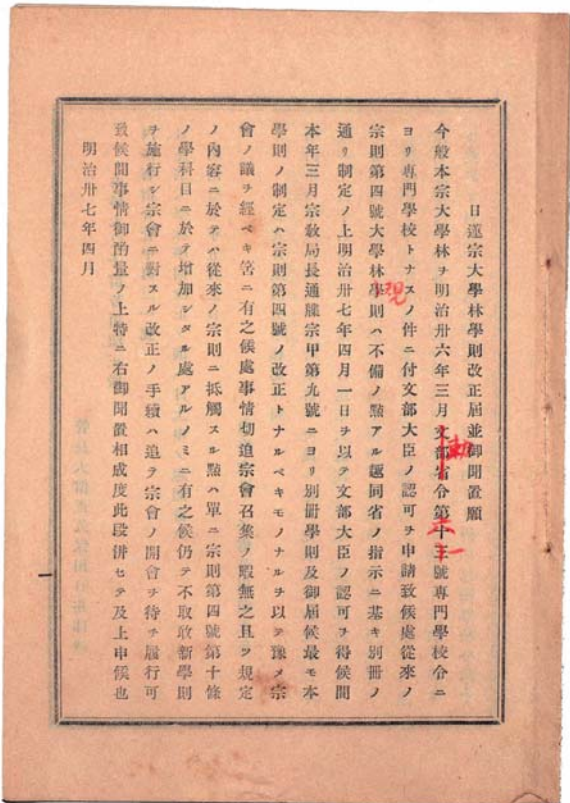 日蓮宗大學林學則改正屆並御聞置願
今般本宗大學林ヲ明治卅六年三月文部省令第十三號專門學校令ニ
勅
六一
ヨリ專門學校トナスノ件ニ付文部大臣ノ認可ヲ申請致候處從來ノ
宗則第四號大學林學則ハ不備ノ點アル趣同省ノ指示ニ基キ別冊ノ
現
通リ制定ノ上明治卅七年四月一日ヲ以テ文部大臣ノ認可ヲ得候間
本年三月宗敎局長通牒宗甲第九號ニヨリ別冊學則及御屆候最モ本
學則ノ制定ハ宗則第四號ノ改正トナルベキモノナルヲ以テ豫メ宗
會ノ議ヲ經ベキ筈ニ有之候處事情切迫宗會召集ノ暇無之且ツ規定
ノ內容ニ於テハ從來ノ宗則ニ抵觸スル點ハ單ニ宗則第四號第十條
ノ學科目ニ於テ增加シタル處アルノミニ有之候仍テ不取敢新學則
ヲ施行シ宗會ニ對スル改正ノ手續ハ追テ宗會ノ開會ヲ待チ履行可
致候間事情御酌量ノ上特ニ右御聞置相成度此段併セテ及上申候也
明治卅七年四月